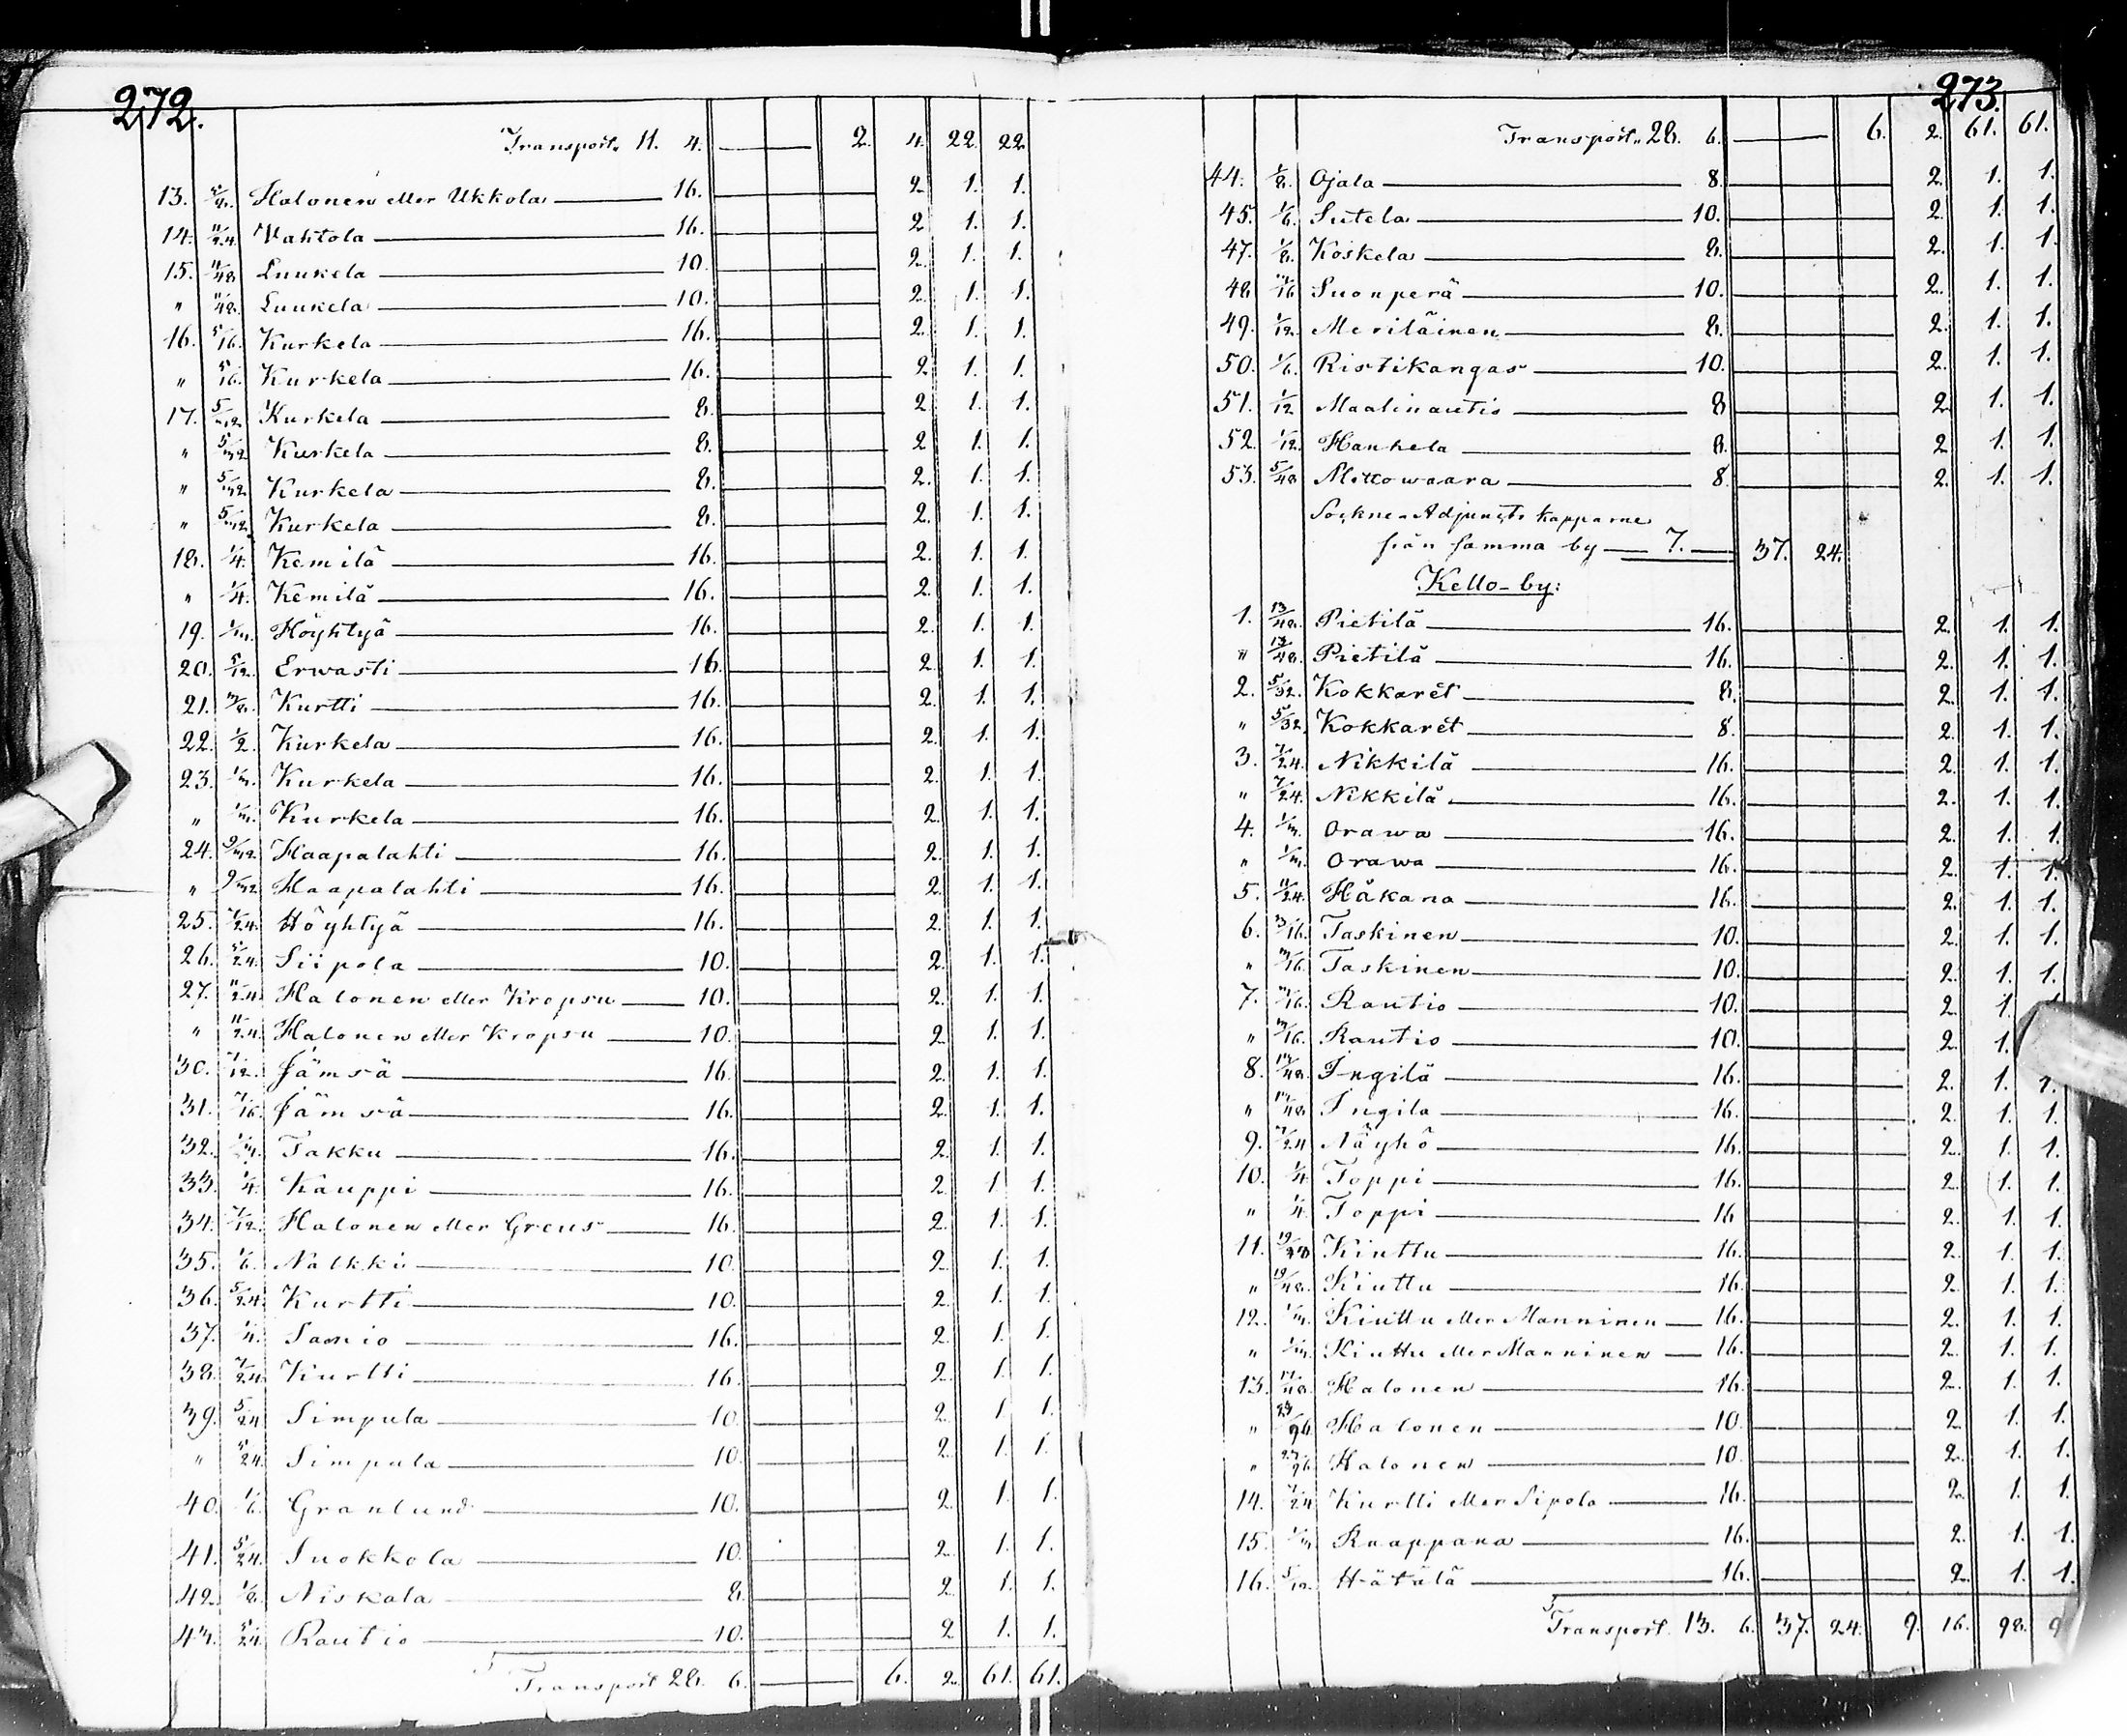 272.
Transport. 11. 4. 2. 4. 22. 22.
13. Halonen eller Ukkola 16. 2. 1. 1.
14. 11/24. Vahtola 16. 2. 1. 1.
15. 11/48. Luukela 10. 2. 1. 1.
" 11/48. Luukela 10. 2. 1. 1.
16. 5/16. Kurkela 16. 2. 1. 1.
" 5/16. Kurkela 16. 2. 1. 1.
17. 5/32. Kurkela 8. 2. 1. 1.
" 5/32. Kurkela 8. 2. 1. 1.
" 5/32. Kurkela 8. 2. 1. 1.
" 5/32. Kurkela 8. 2. 1. 1.
18. 1/4. Kemilä 16. 2. 1. 1.
" 1/4. Kemilä 16. 2. 1. 1.
19. 1/3. Höyhtyä 16. 2. 1. 1.
20. 5/12. Erwasti 16. 2. 1. 1.
21. 3/8. Kurtti 16. 2. 1. 1.
22. 1/2. Kurkela 16. 2. 1. 1.
23. 1/3. Kurkela 16. 2. 1. 1.
" 1/3. Kurkela 16. 2. 1. 1.
24. 9/32. Haapalahti 16. 2. 1. 1.
" 9/32. Haapalahti 16. 2. 1. 1.
25. 7/24. Höyhtyä 16. 2. 1. 1.
26. 5/24. Siipola 10. 2. 1. 1.
27. 11/24. Halonen eller Kropsu 10. 2. 1. 1.
" 11/24. Halonen eller Kropsu 10. 2. 1. 1.
30. 7/12. Jämsä 16. 2. 1. 1.
31. 7/16. Jämsä 16. 2. 1. 1.
32. 1/3. Takku 16. 2. 1. 1.
33. 1/4. Kauppi 16. 2. 1. 1.
34. 7/12. Halonen eller Greus 16. 2. 1. 1.
35. 1/6. Nalkki 10. 2. 1. 1.
36. 5/24. Kurtti 10. 2. 1. 1.
37. 1/4. Sanio 16. 2. 1. 1.
38. 7/24. Kurtti 16. 2. 1. 1.
39. 5/24. Simpula 10. 2. 1. 1.
" 5/24. Simpula 10. 2. 1. 1.
40. 1/6. Granlund 10. 2. 1. 1.
41. 5/24. Suokkola 10. 2. 1. 1.
42. 1/8. Niskala 8. 2. 1. 1.
43. 5/24. Rautio 10. 2. 1. 1.
Transport 28. 6. 6. 2. 61. 61.
273.
Transport. 28. 6. 6. 2. 61. 61.
44. 1/8. Ojala 8. 2. 1. 1.
45. 1/6. Sutela 10. 2. 1. 1.
47. 1/8. Koskela 8. 2. 1. 1.
48. 3/16. Suonperä 10. 2. 1. 1.
49. 1/12. Meriläinen 8. 2. 1. 1.
50. 1/6. Ristikangas 10. 2. 1. 1.
51. 1/12. Maalinautio 8. 2. 1. 1.
52. 1/12. Hankela 8. 2. 1. 1.
53. 5/48. Mittowaara 8. 2. 1. 1.
Sockne-Adjuncts kapparne
från samma by 7. 37. 24.
Kello-by:
1. 13/48. Pietilä 16. 2. 1. 1.
" 13/48. Pietilä 16. 2. 1. 1.
2. 5/32. Kokkarét 8. 2. 1. 1.
" 5/32. Kokkarét 8. 2. 1. 1.
3. 7/24. Nikkilä 16. 2. 1. 1.
" 7/24. Nikkilä 16. 2. 1. 1.
4. 1/3. Orawa 16. 2. 1. 1.
" 1/3. Orawa 16. 2. 1. 1.
5. 11/24. Håkana 16. 2. 1. 1.
6. 3/16. Taskinen 10. 2. 1. 1.
" 3/16. Taskinen 10. 2. 1. 1.
7. 3/16. Rautio 10. 2. 1.
" 3/16. Rautio 10. 2. 1.
8. 17/48. Ingilä 16. 2. 1. 1.
" 17/48. Ingila 16. 2. 1. 1.
9. 7/24. Näyhö 16. 2. 1. 1.
10. 1/4. Toppi 16. 2. 1. 1.
" 1/4. Toppi 16. 2. 1. 1.
11. 19/48. Kiuttu 16. 2. 1. 1.
" 19/48. Kiuttu 16. 2. 1. 1.
12. 1/3. Kiuttu eller Manninen 16. 2. 1. 1.
" 1/3. Kiuttu eller Manninen 16. 2. 1. 1.
13. 17/48. Halonen 16. 2. 1. 1.
" Halonen 10. 2. 1. 1.
" Halonen 10. 2. 1. 1.
14. 7/24. Kurtti eller Sipola 16. 2. 1. 1.
15. 1/3. Knappana 16. 2. 1. 1.
16. 5/12. Hätälä 16. 2. 1. 1.
Transport. 13. 6. 37. 24. 9. 16. 98. 9